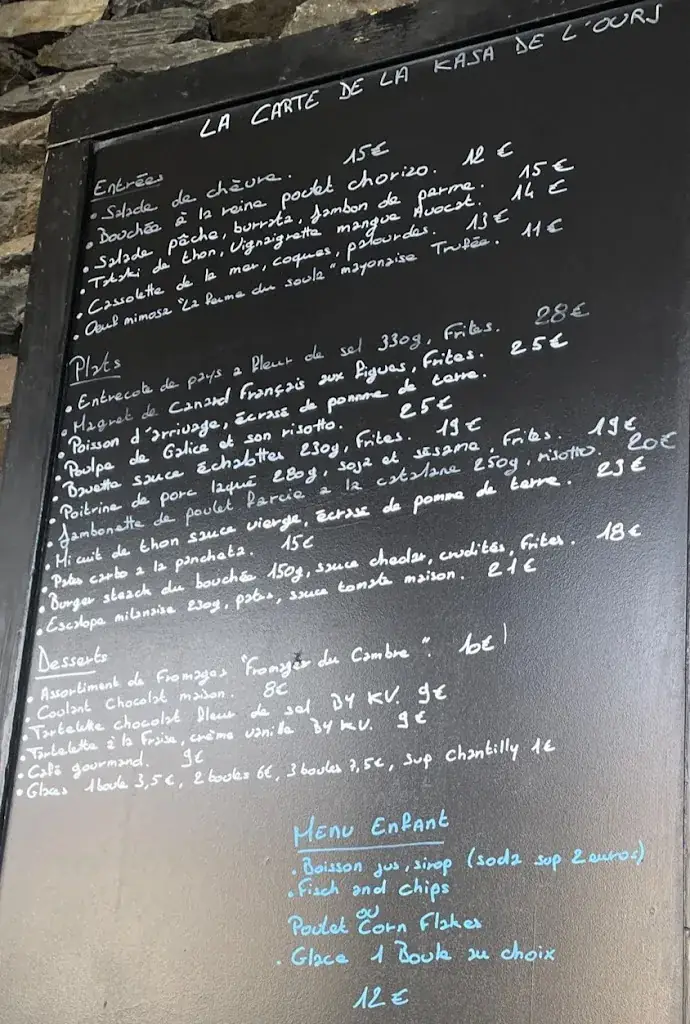 LA CARTE DE LA KASA DE L'OURS
Entrées
• Salade de chèvre. 15€
• Bouchée à la reine poulet chorizo. 12 €
• Salade pêche, burrata, jambon de parme. 15 €
• Tataki de thon, Vignaigrette mangue Avocat. 14 €
• Cassolette de la mer, coques, palourdes. 13€
• Oeuf mimosa "La ferme du soula" mayonaise Trufée. 11€
Plats
• Entrecote de pays a fleur de sel 330g, Frites. 28€
• Magret de Canard Français aux figues, Frites. 25€
• Poisson d'arrivage, écrasé de pomme de terre.
• Poulpe de Galice et son risotto. 25€
• Bavette sauce échalottes 230g, Frites. 19€
• Poitrine de porc laqué 280g, soja et sésame, Frites. 19€
• Jambonette de poulet farcie a la catalane 250g, risotto. 20€
• Mi cuit de thon sauce vierge, écrasé de pomme de terre. 23€
• Pates carbo a la pancheta. 15€
• Burger steack du bouchée 150g, sauce chedar, crudités, Frites. 18€
• Escalope milanaise 230g, pates, sauce tomate maison. 21€
Desserts
• Assortiment de Fromages "Fromager du Cambre". 10€
• Coulant Chocolat maison. 8€
• Tartelette chocolat fleur de sel BY KV. 9€
• Tartelette à la Fraise, crème vanille BY KV. 9€
• Café gourmand. 9€
• Glaces 1 boule 3,5€, 2 boules 6€, 3 boules 7,5€, sup Chantilly 1€
MENU ENFANT
• Boisson jus, sirop (soda sup 2 euros)
• Fisch and chips
ou
Poulet Corn Flakes
• Glace 1 Boule au choix
12€